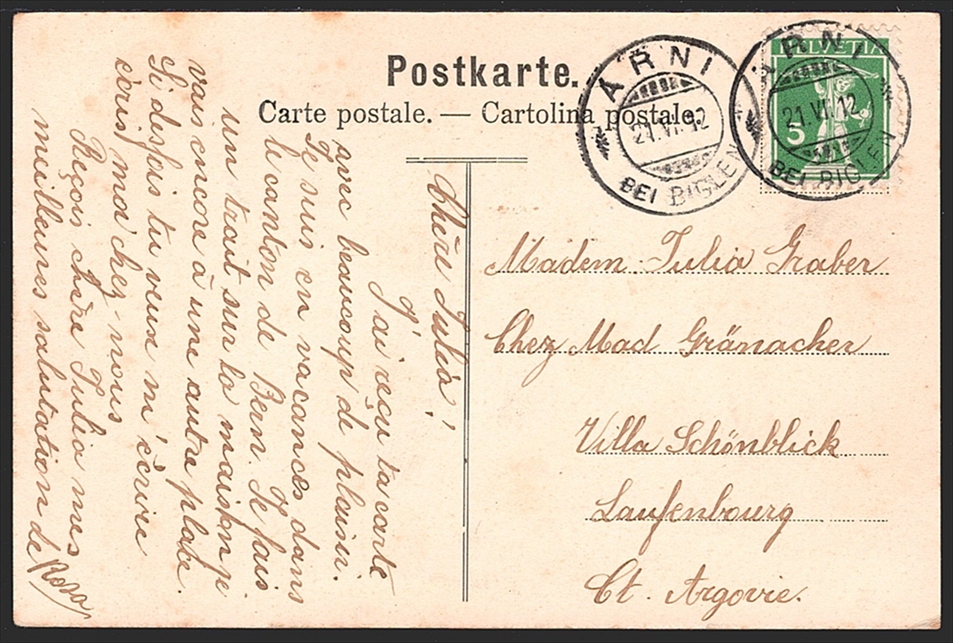 Postkarte.
Carte postale. — Cartolina postale.
HELVETIA
5
ÄRNI
21.VI.12
BEI BIGLEN
ÄRNI
21.VI.12
BEI BIGLEN
Madem Julia Graber
Chez Mad Gränacher
Villa Schönblick
Laufenbourg
Ct. Argovie.
Chère Julia!
J'ai reçu ta carte
avec beaucoup de plaisir.
Je suis en vacances dans
le canton de Bern. Je fais
un trait sur la maison je
vais encore à une autre place.
Si desfois tu veux m'écrire
écris, ma chez-nous
Reçois chère Julia mes
meilleures salutation de Rosa